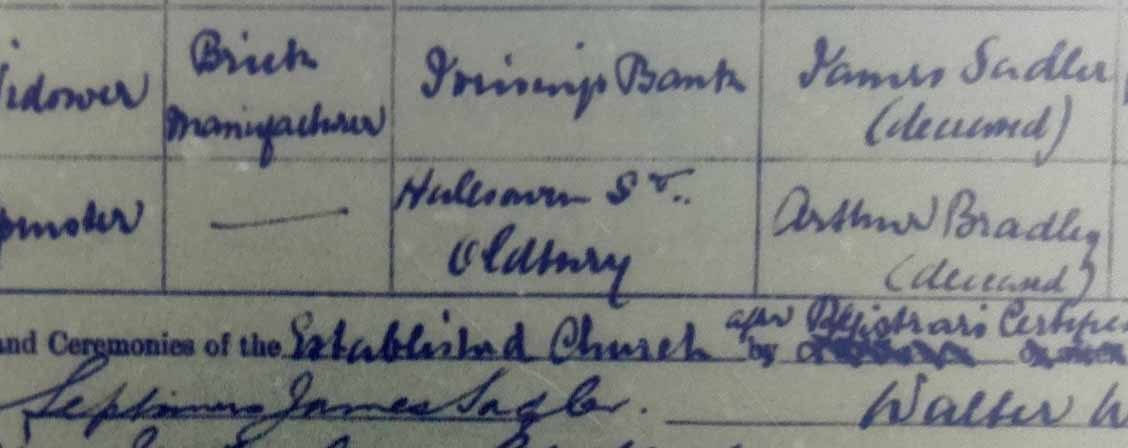 idower
Brick
manufacturer
Bank
James Sadler
(deceased)
pinster
Halesowen St.
Oldbury
Arthur Bradley
(deceased)
and Ceremonies of the Established Church after Registrar's Certific
by
Septimus James Sadler.
Walter W